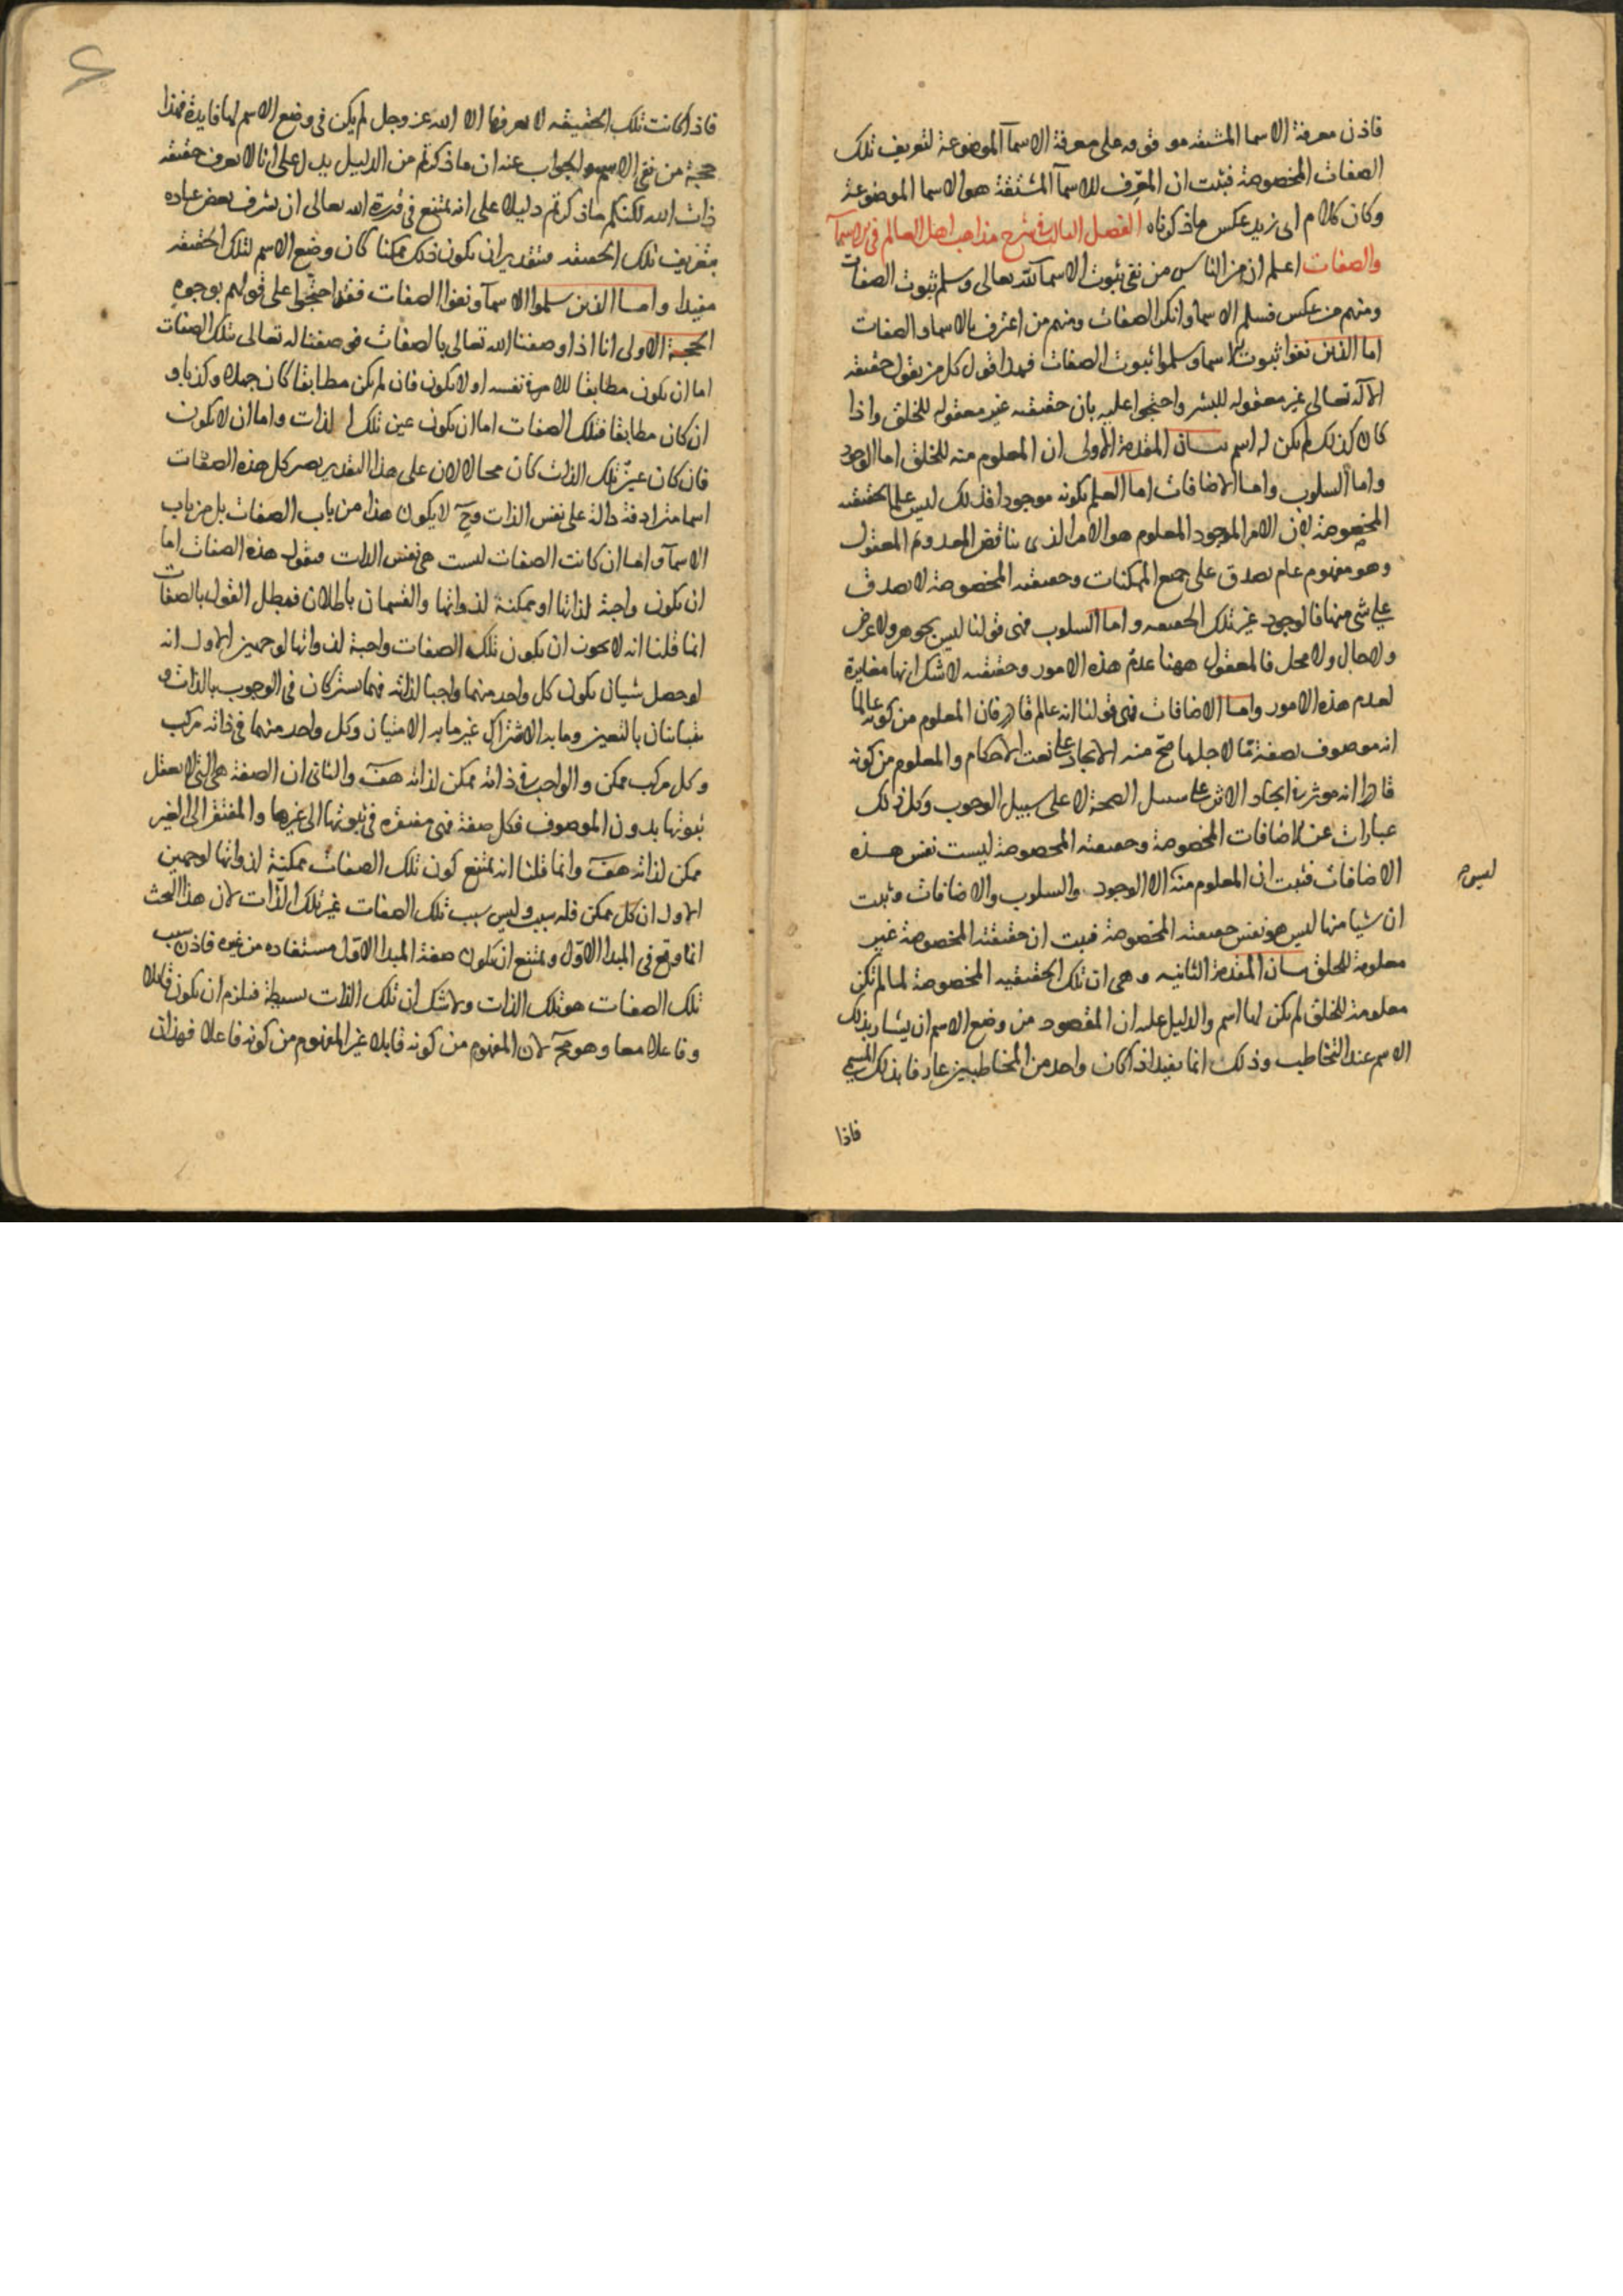 فاذن معرفة الاسما المشتقه موقوفه على معرفة الاسمآ الموضوعة لتعريف تلك
الصفات المخصوصة فثبت ان المعرِّف للاسمآ المشتقة هو الاسما الموضوعة
وكان كلام ابى زيد عكس ماذكرناه الفصل الثالث فى شرح مذاهب اهل العالم فى الاسمآ
والصفات اعلم ان من الناس من نفى ثبوت الاسما لله تعالى وسلم ثبوت الصفات
ومنهم من عكس فسلم الاسما وانكر الصفات ومنهم من اعترف بالاسما والصفات
اما الذين نفوا ثبوت الاسما وسلموا ثبوت الصفات فهذا قول كل من يقول حقيقه
الاله تعالى غير معقوله للبشر واحتجوا عليه بان حقيقته غير معقوله للخلق واذا
كان كذلك لم يكن له اسم بيان المقدمة الاولى ان المعلوم منه للخلق اما الوجود
واما السلوب واما الاضافات اما العلم بكونه موجودا فذلك ليس علما بحقيقته
المخصوصة لان الامر الموجود المعلوم هو الامر الذى يناقض المعدوم المعقول
وهو مفهوم عام يصدق على جميع الممكنات وحقيقته المخصوصة لا يصدق
على شى منها فالوجود غير تلك الحقيقه واما السلوب فهى قولنا ليس بجوهر ولا عرض
ولا حال ولا محل فالمعقول ههنا عدم هذه الامور وحقيقته لا شك انها مغايرة
لعدم هذه الامور واما الاضافات فهى قولنا انه عالم قادر فان المعلوم من كونه عالما
انه موصوف بصفة ما لاجلها صح منه الايجاد على نعت الاحكام والمعلوم من كونه
قادرا انه موثر فى ايجاد الاثر على سبيل الصحة لا على سبيل الوجوب وكل ذلك
عبارات عن الاضافات المخصوصة وحقيقته المخصوصة ليست نفس هذه
الاضافات فثبت ان المعلوم منه الا الوجود والسلوب والاضافات وثبت
ليس
ان شيا منها ليس هو نفس حقيقته المخصوصة فثبت ان حقيقته المخصوصة غير
معلومة للخلق بيان المقدمة الثانيه وهى ان تلك الحقيقيه المخصوصة لما لم تكن
معلومة للخلق لم يكن لها اسم والدليل عليه ان المقصود من وضع الاسم ان يشار بذلك
الاسم عند التخاطب وذلك انما يفيد اذا كان واحد من المخاطبين عارفا بذلك المسمى
فاذا
فاذا كانت تلك الحقيقه لا يعرفها الا الله عز وجل لم يكن فى وضع الاسم لها فايدة فهذا
حجة من نفى الاسم والجواب عنه ان ماذكرتم من الدليل يدل على انا لا نعرف حقيقه
ذات الله لكنكم ماذكرتم دليلا على انه يمتنع فى قدرة الله تعالى ان يشرف بعض عباده
بتعريف تلك الحقيقه فبتقدير ان يكون ذلك ممكنا كان وضع الاسم لتلك الحقيقه
مفيدا واما الذين سلموا الاسمآ ونفوا الصفات فقد احتجوا على قولهم بوجوه
الحجة الاولى انا اذا وصفنا الله تعالى بالصفات فوصفنا له تعالى بتلك الصفات
اما ان يكون مطابقا للامر فى نفسه او لا يكون فان لم يكن مطابقا كان جهلا وكذبا و
ان كان مطابقا فتلك الصفات اما ان يكون عين تلك الذات واما ان لا يكون
فان كان عين تلك الذات كان محالا لان على هذا التقدير يصير كل هذه الصفات
اسما مترادفة دالة على نفس الذات وحٓ لا يكون هذا من باب الصفات بل من باب
الاسمآ واما ان كانت الصفات ليست هى نفس الذات فنقول هذه الصفات اما
ان يكون واجبة لذاتها او ممكنة لذواتها والقسمان باطلان فبطل القول بالصفات
انما قلنا انه لا يجوز ان يكون تلك الصفات واجبة لذواتها لوجهين الاول انه
لو حصل شيان يكون كل واحد منهما واجبا لذاته فهما يشتركان فى الوجوب بالذات و
يتباينان بالتعين وما به الاشتراك غير ما به الامتيان وكل واحد منهما فى ذاته مركب
وكل مركب ممكن والواجب فى ذاته ممكن لذاته هفٓ والثانى ان الصفة هى التى لا يعقل
ثبوتها بدون الموصوف فكل صفة فهى مفتقره فى ثبوتها الى غيرها والمفتقر الى الغير
ممكن لذاته هفٓ وانما قلنا انه يمتنع كون تلك الصفات ممكنة لذواتها لوجهين
الاول ان كل ممكن فله سبب وليس سبب تلك الصفات غير تلك الذات لان هذا البحث
انما وقع فى المبدا الاول ويمتنع ان يكون صفة المبدا الاول مستفاده من غيره فاذن سبب
تلك الصفات هو تلك الذات ولا شك ان تلك الذات بسيطة فيلزم ان يكون قابلا
وفاعلا معا وهو محٓ لان المفهوم من كونه قابلا غير المفهوم من كونه فاعلا فهذان